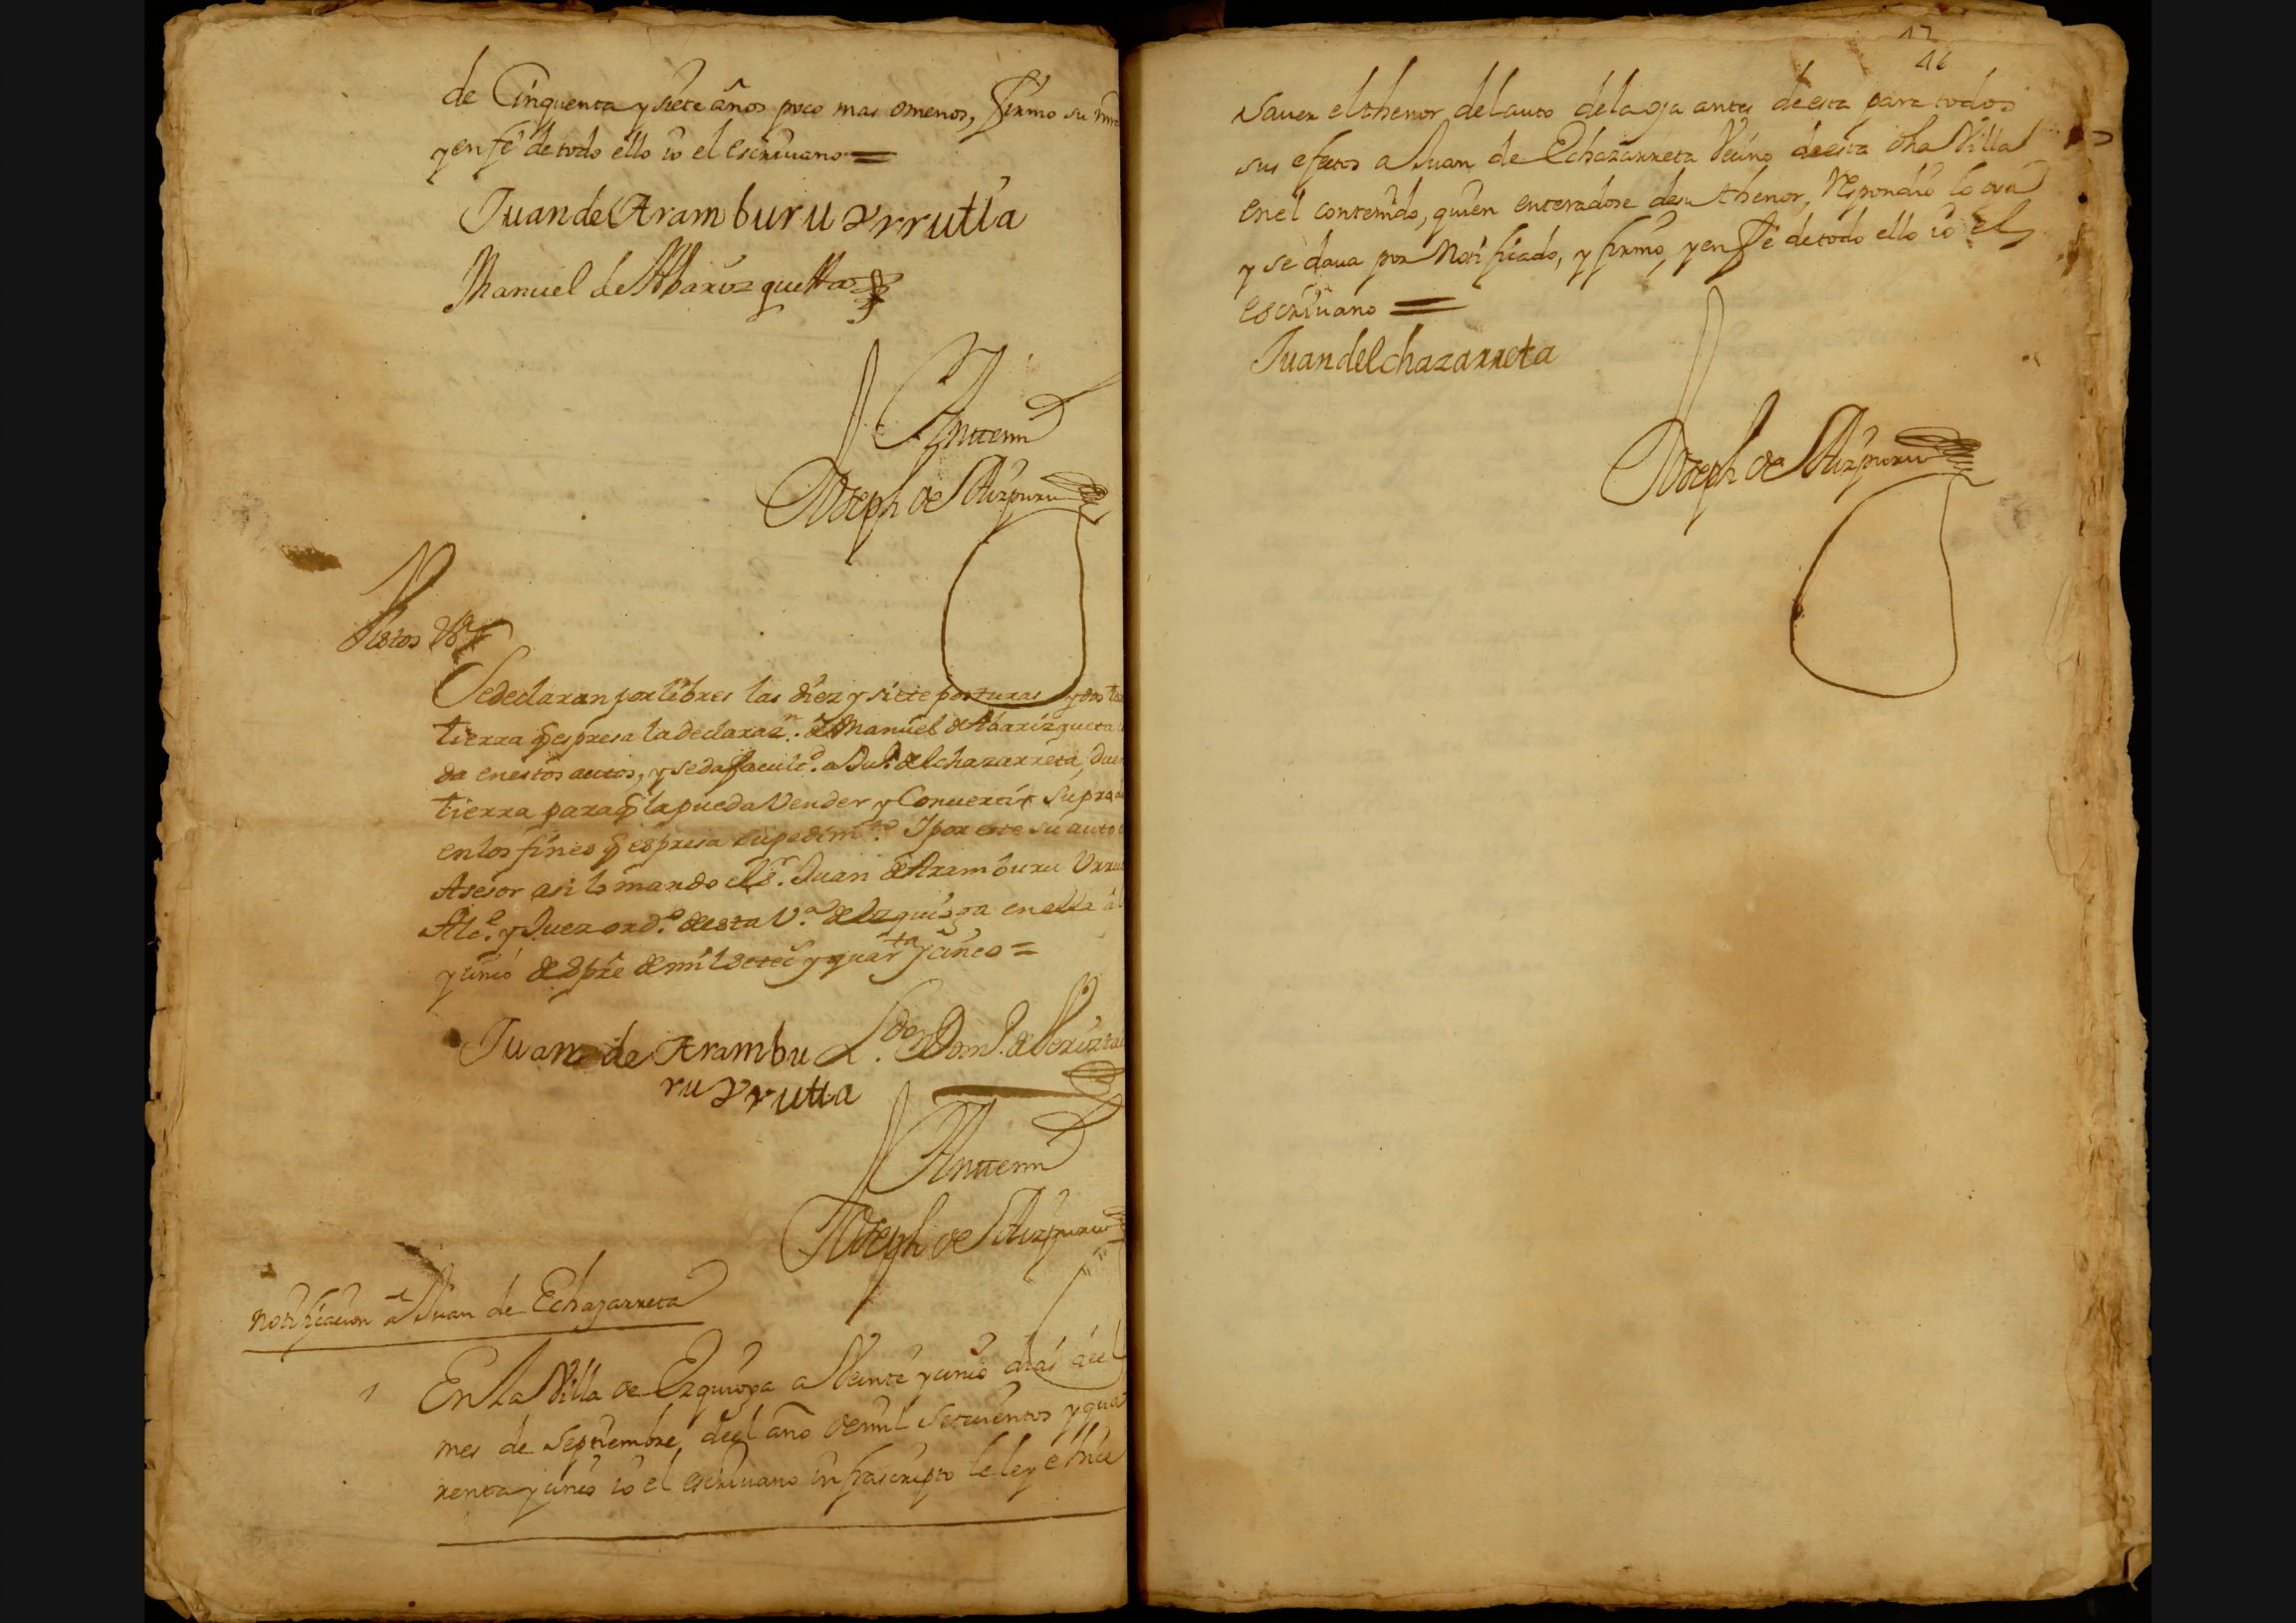 de Cinquenta y siete años poco mas omenos, firmo su mrd
y en fe de todo ello io el escriuano =
Juan de Aramburu Yrrutia
Manuel de Abarizqueta
Antemi
Joseph de Aizpuru
Vistos
Sedeclaran por libres las diez y siete posturas y dos
tierra q̃ espresa la declaraz.n de Manuel de Abarizqueta
da enestos autos, y seda facult.d a Ju.º de Echazarreta, due
tierra paraq̃ la pueda Vender y Conuertir su pro
enlos fines q̃ espresa su pedim.to Y por este su auto
Asesor asi lo mando el S.r Juan de Aramburu Urru
Alc.e y Juez ord.º desta V.a de Ezquioga en ella a
y cinco de Spre de mil setec.s y quar.ta y cinco =
Juan de Arambu
ru Yrrutia
L.do Dom.º de
Antemi
Joseph de Aizpuru
Notificacion a Juan de Echazarreta
1 En la Villa de Ezquioga a Veinte y cinco dias del
mes de Septiembre, del año de mil setecientos y qua
renta y cinco io el escriuano infrascripto le ley e hice
17
16
Sauer el thenor del auto dela oja antes deesta para todos
sus efectos a Juan de Echazarreta Vecino deesta dha Villa
enel contenido, quien enteradose desu thenor, Respondio lo oya
y se daua por Notificado, y firmo, y en Fe de todo ello io el
escriuano =
Juan de Echazarreta
Joseph de Aizpuru